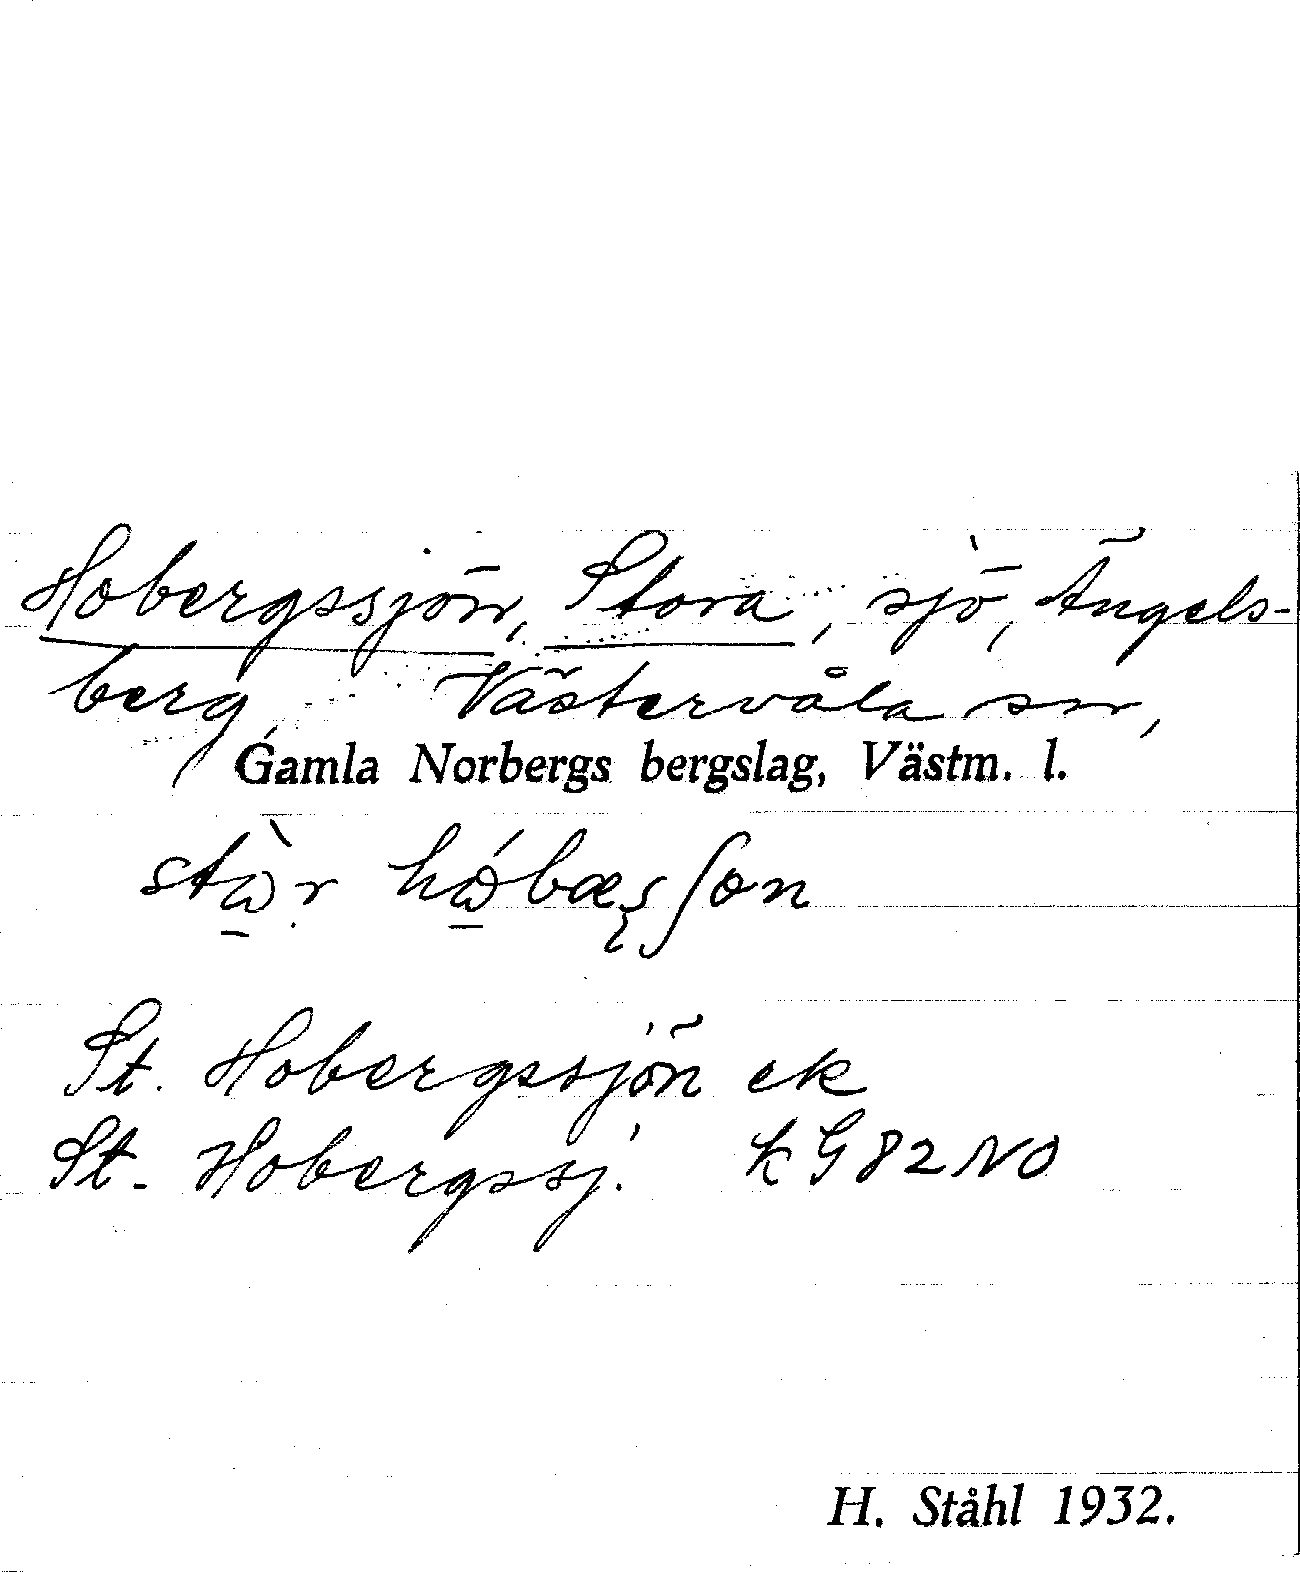 Hobergssjön, Stora, sjö, Ängels-
berg, Västervåla sn,
Gamla Norbergs bergslag, Västm. l.
St. Hobergssjön ek
St. Hobergssj. KG 82 NO
H. Ståhl 1932.